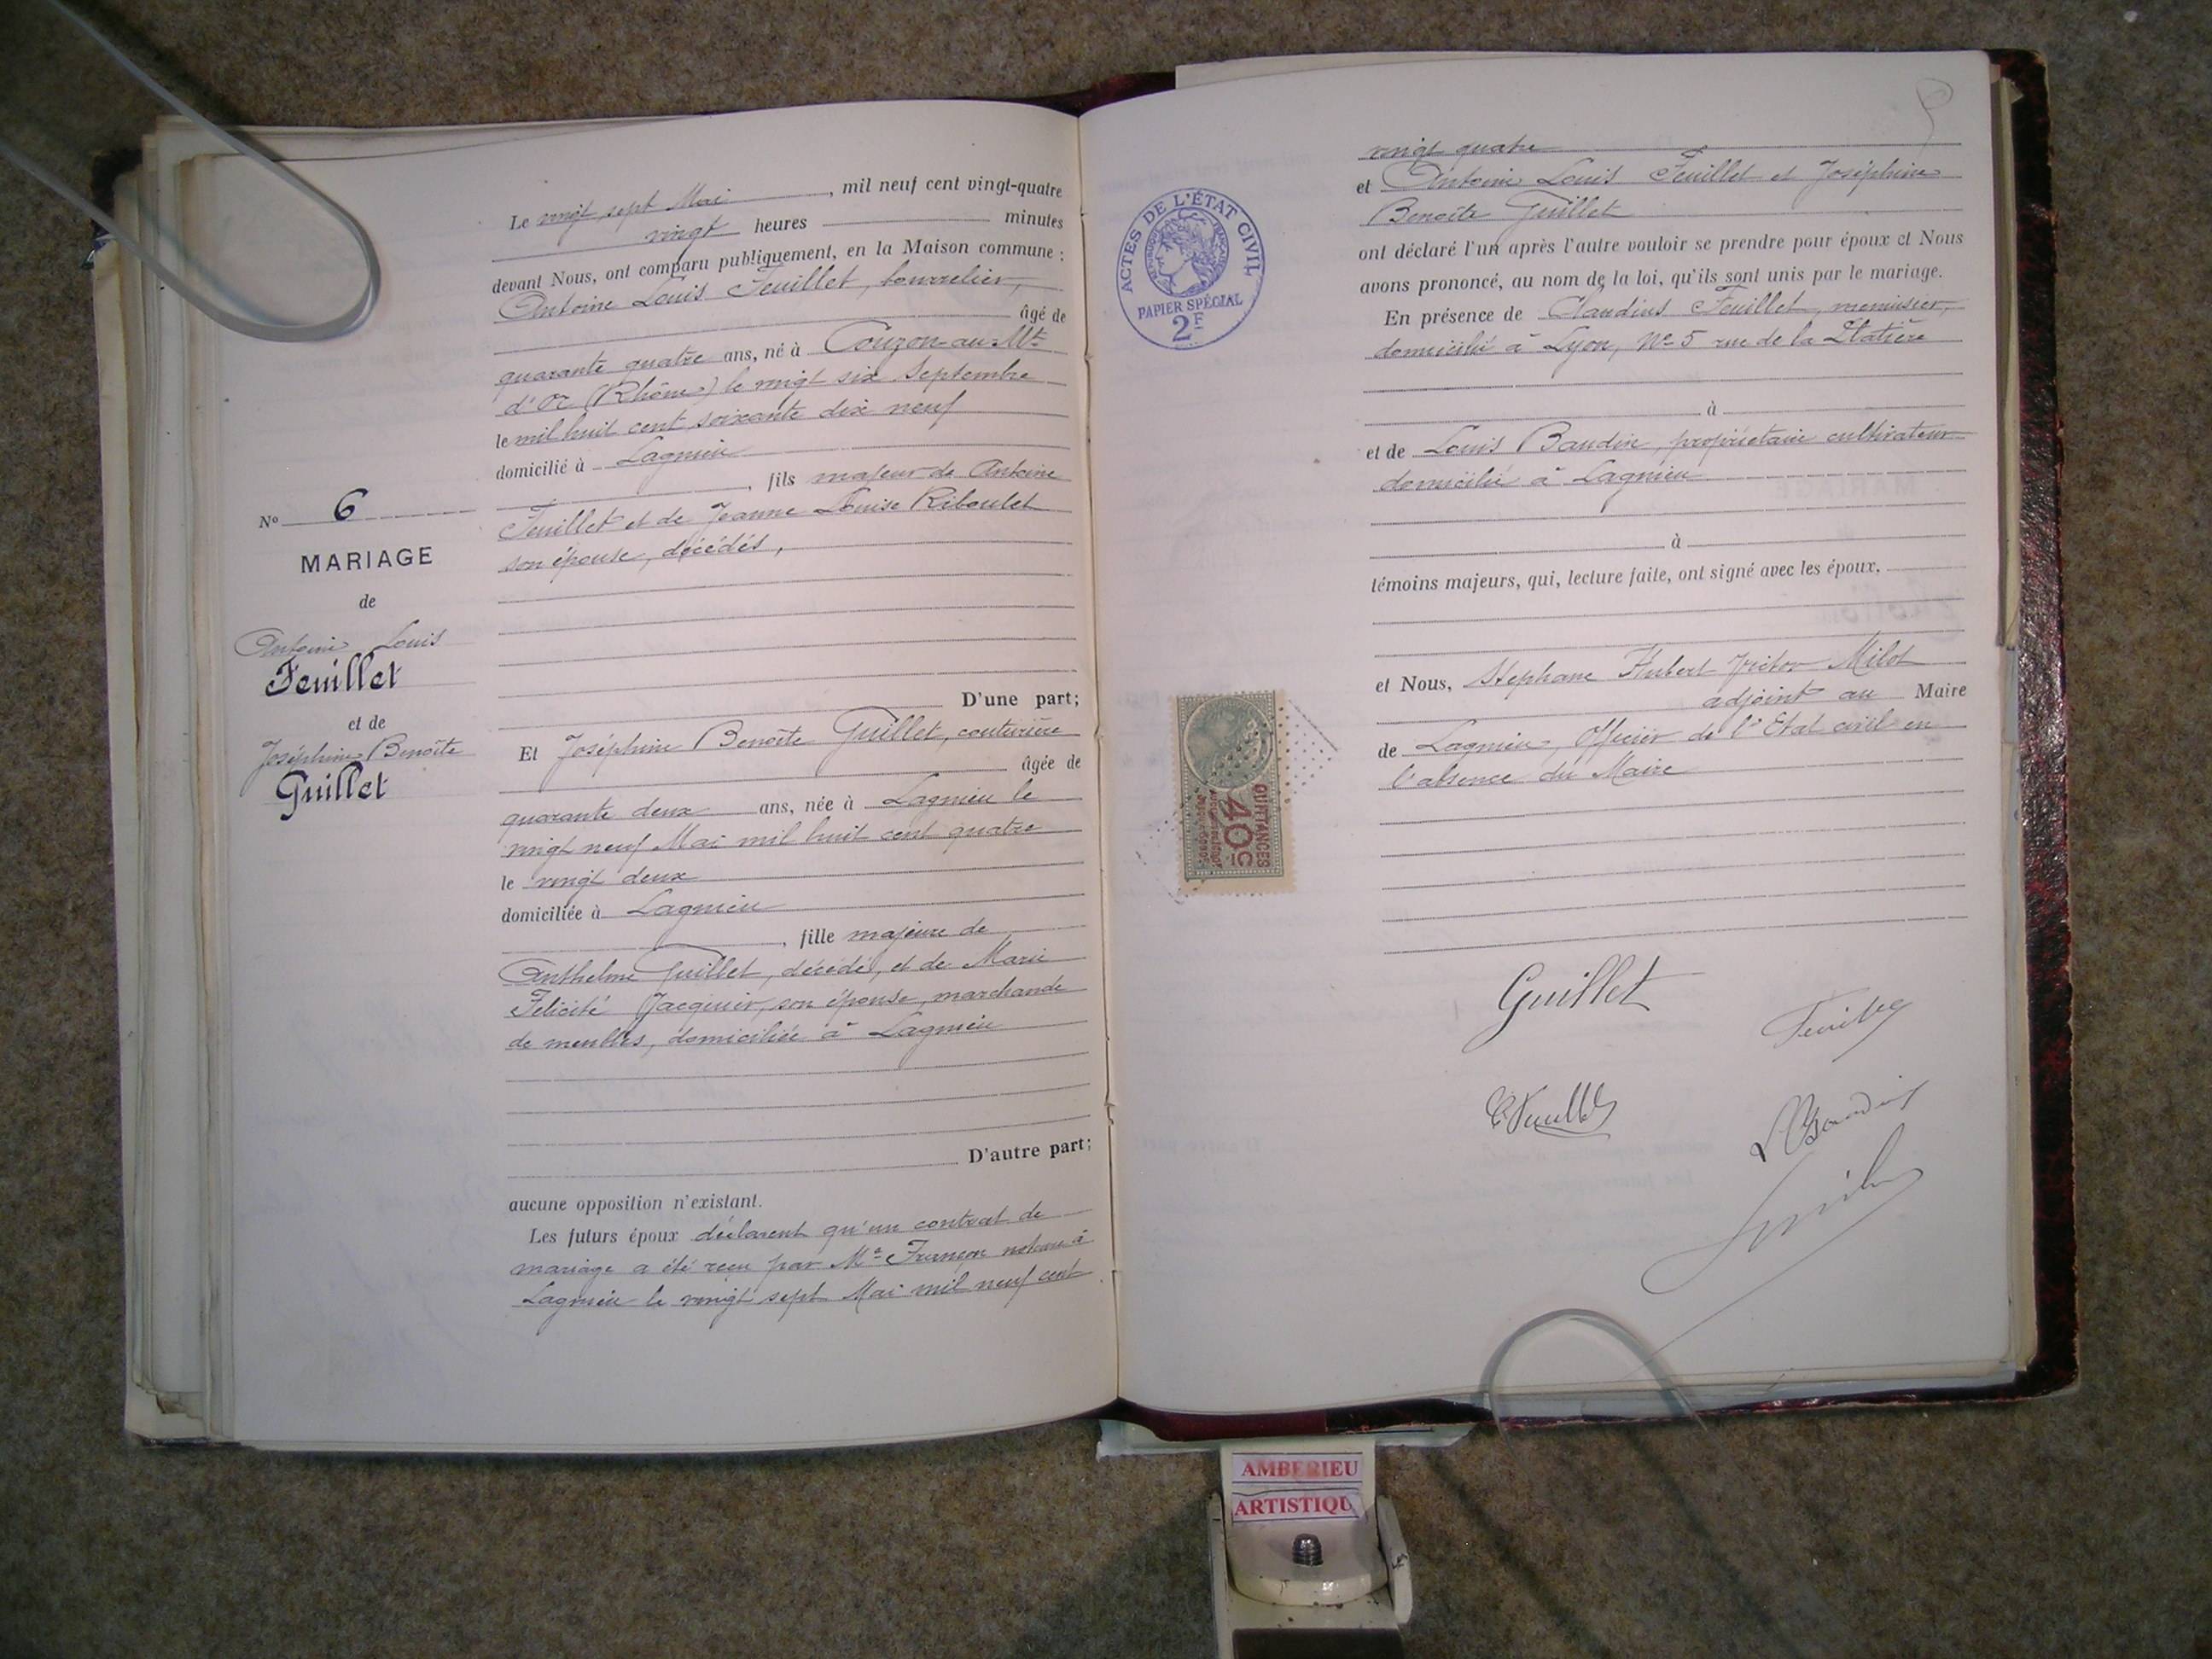 Le vingt sept Mai, mil neuf cent vingt-quatre
vingt heures minutes
devant Nous, ont comparu publiquement, en la Maison commune :
Antoine Louis Feuillet, bourrelier,
âgé de
quarante quatre ans, né à Couzon-au-Mt
d'Or (Rhône) le vingt six Septembre
le mil huit cent soixante dix neuf
domicilié à Lagnieu
, fils majeur de Antoine
Feuillet et de Jeanne Louise Riboulet
son épouse, décédés,
No 6
MARIAGE
de
Antoine Louis
Feuillet
et de
Joséphine Benoîte
Guillet
D'une part;
Et Joséphine Benoîte Guillet, couturière
âgée de
quarante deux ans, née à Lagnieu le
vingt neuf Mai mil huit cent quatre
le vingt deux
domiciliée à Lagnieu
, fille majeure de
Anthelme Guillet, décédé, et de Marie
Félicité Jacquier, son épouse, marchande
de meubles, domiciliée à Lagnieu
D'autre part;
aucune opposition n'existant.
Les futurs époux déclarent qu'un contrat de
mariage a été reçu par Me Françon notaire à
Lagnieu le vingt sept Mai mil neuf cent
vingt quatre
et Antoine Louis Feuillet et Joséphine
Benoîte Guillet
ont déclaré l'un après l'autre vouloir se prendre pour époux et Nous
avons prononcé, au nom de la loi, qu'ils sont unis par le mariage.
En présence de Claudius Feuillet, menuisier,
domicilié à Lyon, No 5 rue de la Platière
à
et de Louis Baudin, propriétaire cultivateur
domicilié à Lagnieu
à
témoins majeurs, qui, lecture faite, ont signé avec les époux,
et Nous, Stephane Hubert Victor Milot
adjoint au Maire
de Lagnieu, Officier de l'Etat civil en
l'absence du Maire
Guillet
Feuillet
C. Feuillet
L Baudin
ACTES DE L'ÉTAT CIVIL
RÉPUBLIQUE FRANÇAISE
PAPIER SPÉCIAL
2F
QUITTANCES
40c
AMBERIEU
ARTISTIQU